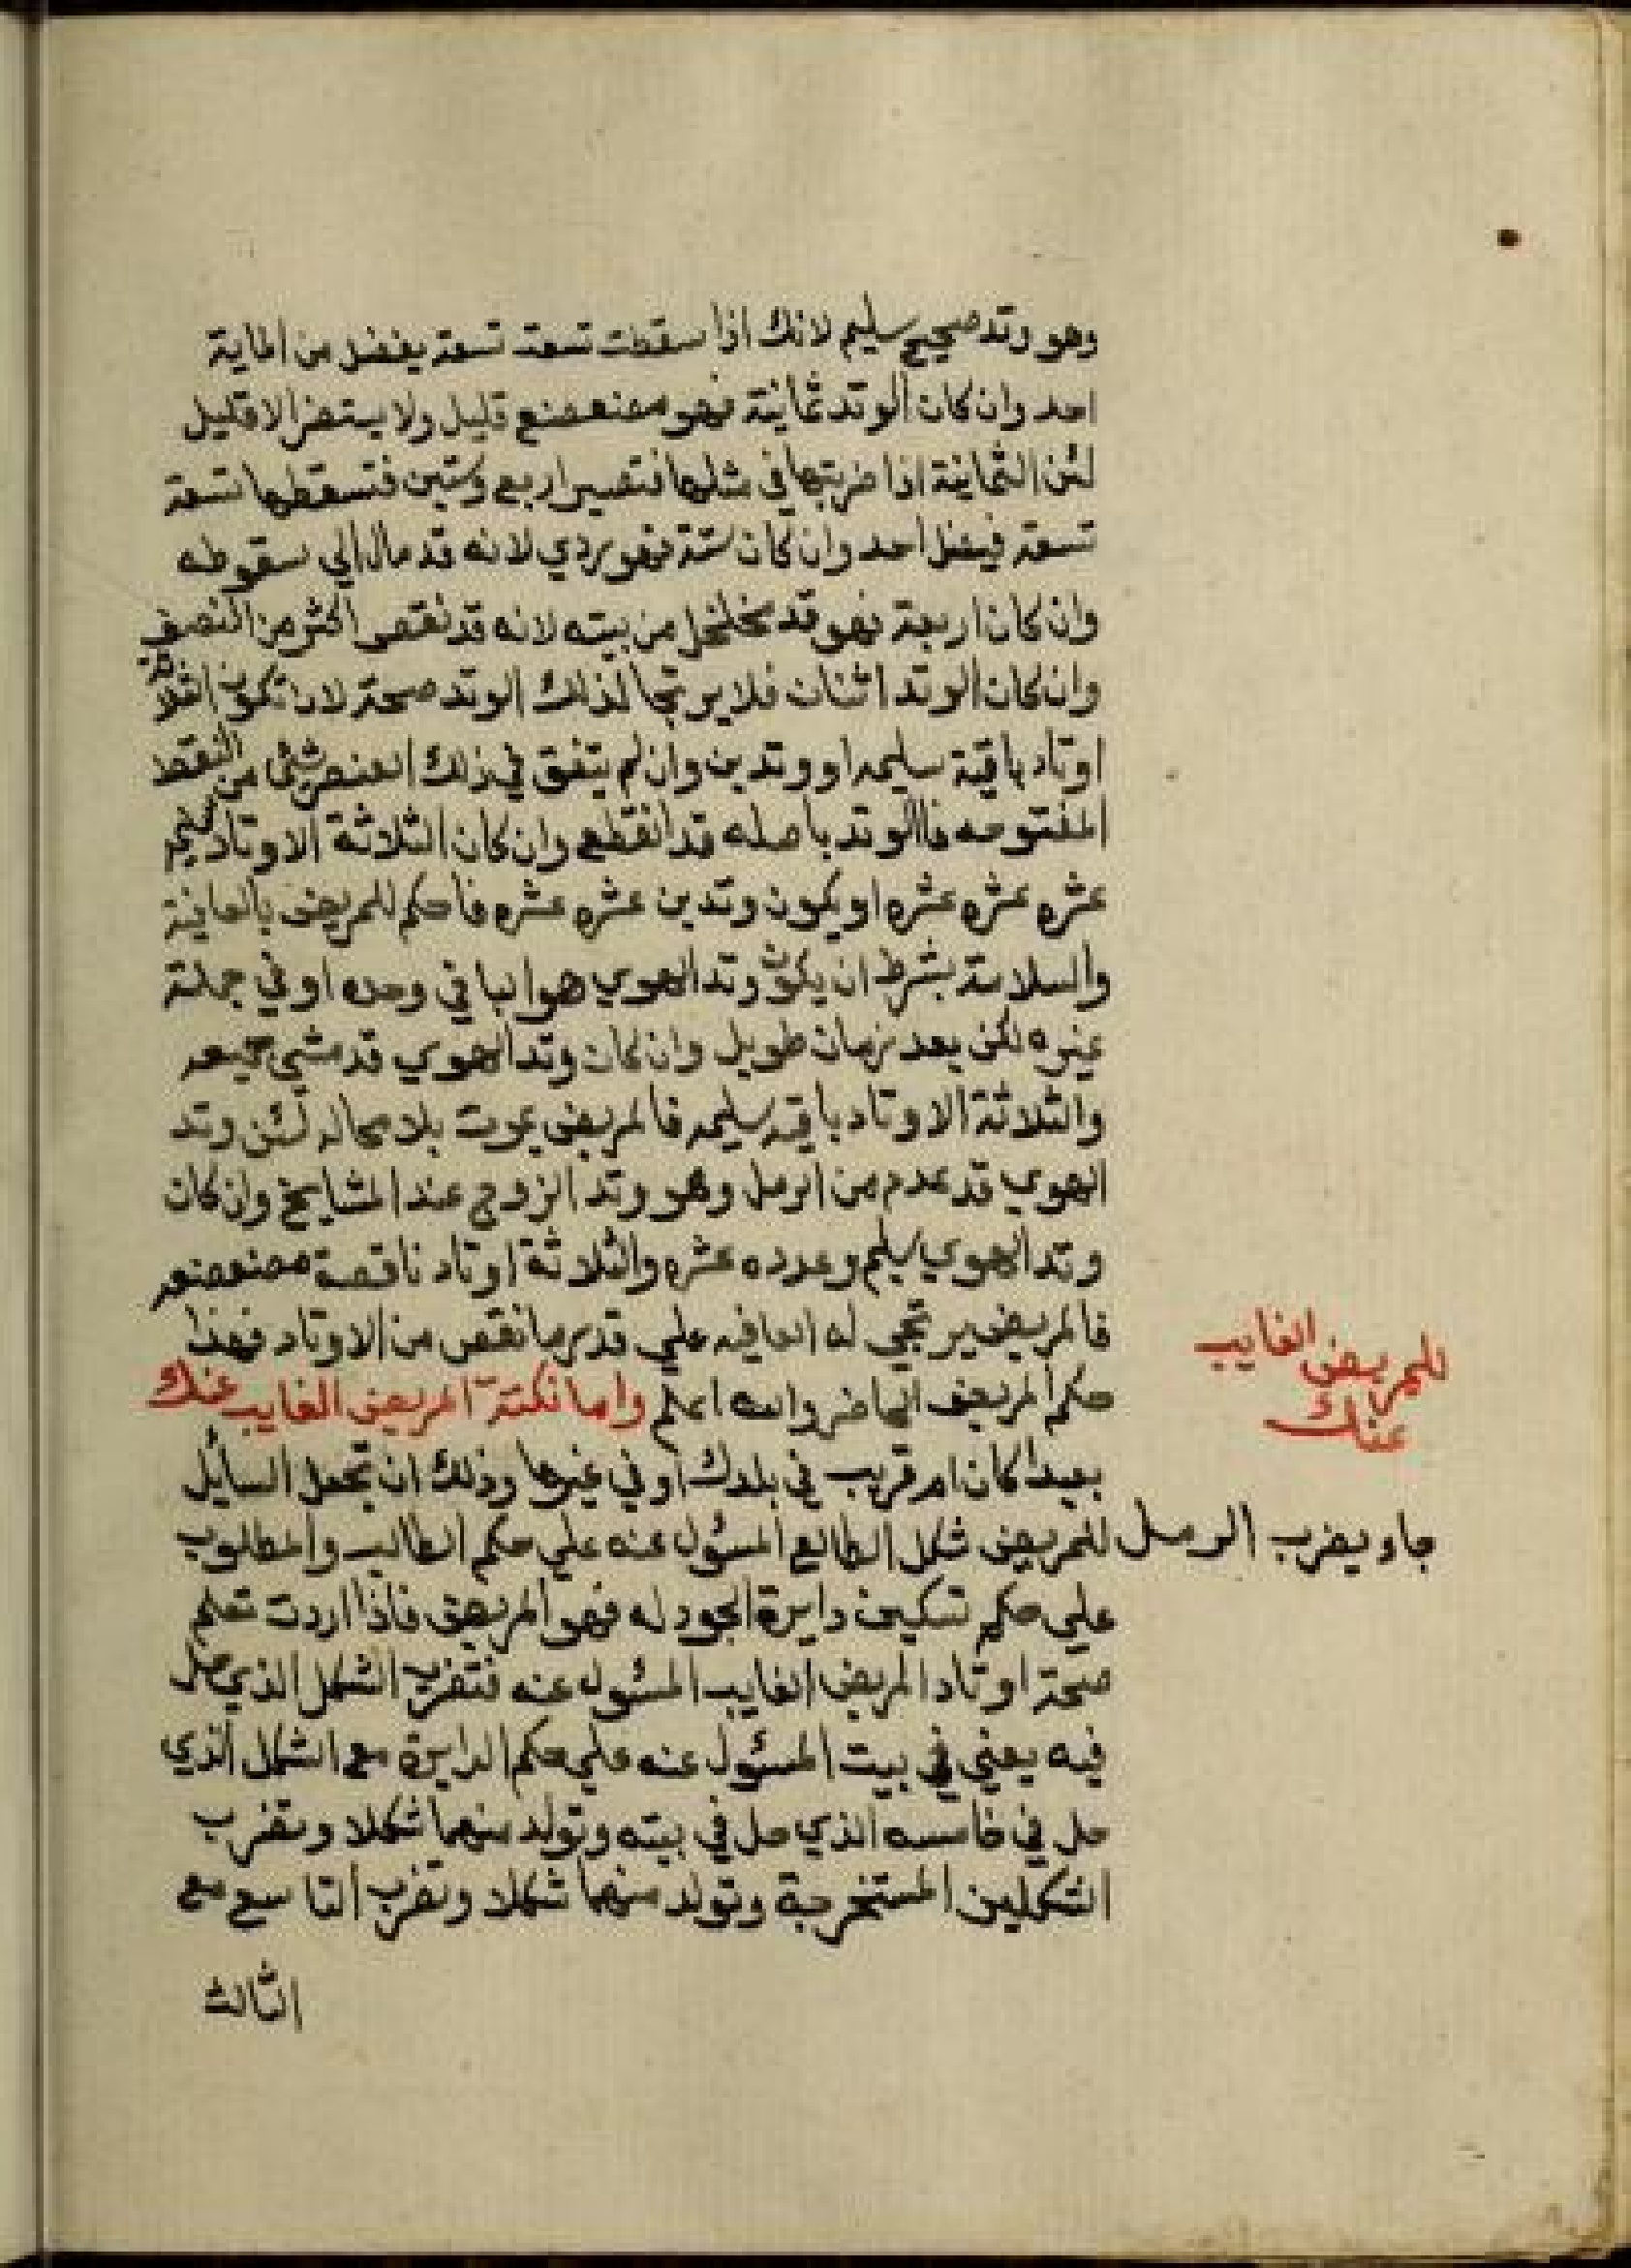 وهو وتد صحيح سليم لانك اذا سقطت تسعة تسعة يفضل من الماية
احد وان كان الوتد ثمانية فهو متضعضع قليل ولا يستضر الا قليل
لئن الثمانية اذا ضربتها في مثلها فتصير اربع وستين فتسقطها تسعة
تسعة فيفضل احد وان كان ستة فهو ردي لانه قد مال الي سقوطه
وان كان اربعة فهو قد تخلخل من بيته لانه قد نقص اكثر من النصف
وان كان الوتد اثنان فلا يرتجا لذلك الوتد صحة لان تكون الثلاثة
اوتاد باقية سليمه او وتدين وان لم يتفق في ذلك العنصر شي من النقط
المفتوحه فاالوتد باصله قد انقطع وان كان الثلاثة الاوتاد سليم
عشره عشره عشره او يكون وتدين عشره عشره فاحكم للمريض بالعافية
والسلامة بشرط ان يكون وتد الهوي هو الباقي وحده او في جملة
غيره لكن بعد زمان طويل وان كان وتد الهوي قد مشي جميعه
والثلاثة الاوتاد باقيه سليمه فالمريض يموت بلا محاله لئن وتد
الهوي قد عدم من الرمل وهو وتد الزوج عند المشايخ وان كان
وتد الهوي سليم وعدده عشره والثلاثة اوتاد ناقصة متضعضعه
فالمريض يرتجي له العافيه علي قدر ما نقص من الاوتاد فهذا
حكم المريض الحاضر والله اعلم واما نكتة المريض الغايب عنك
للمريض الغايب
عنك
بعيدا كان ام قريب في بلدك او في غيرها وذلك ان تجعل السايل
جاء يضرب الرمل للمريض شكل الطالع المسئول عنه علي حكم الطالب والمطلوب
علي حكم تسكين دايرة الجودله فهو المريض فاذا اردت تعلم
صحة اوتاد المريض الغايب المسئول عنه فتضرب الشكل الذي حل
فيه يعني في بيت المسئول عنه علي حكم الدايرة مع الشكل الذي
حل في خامسه الذي حل في بيته وتولد منهما شكلا وتضرب
الشكلين المستخرجة وتولد منهما شكلا وتضرب التاسع مع
الثالث